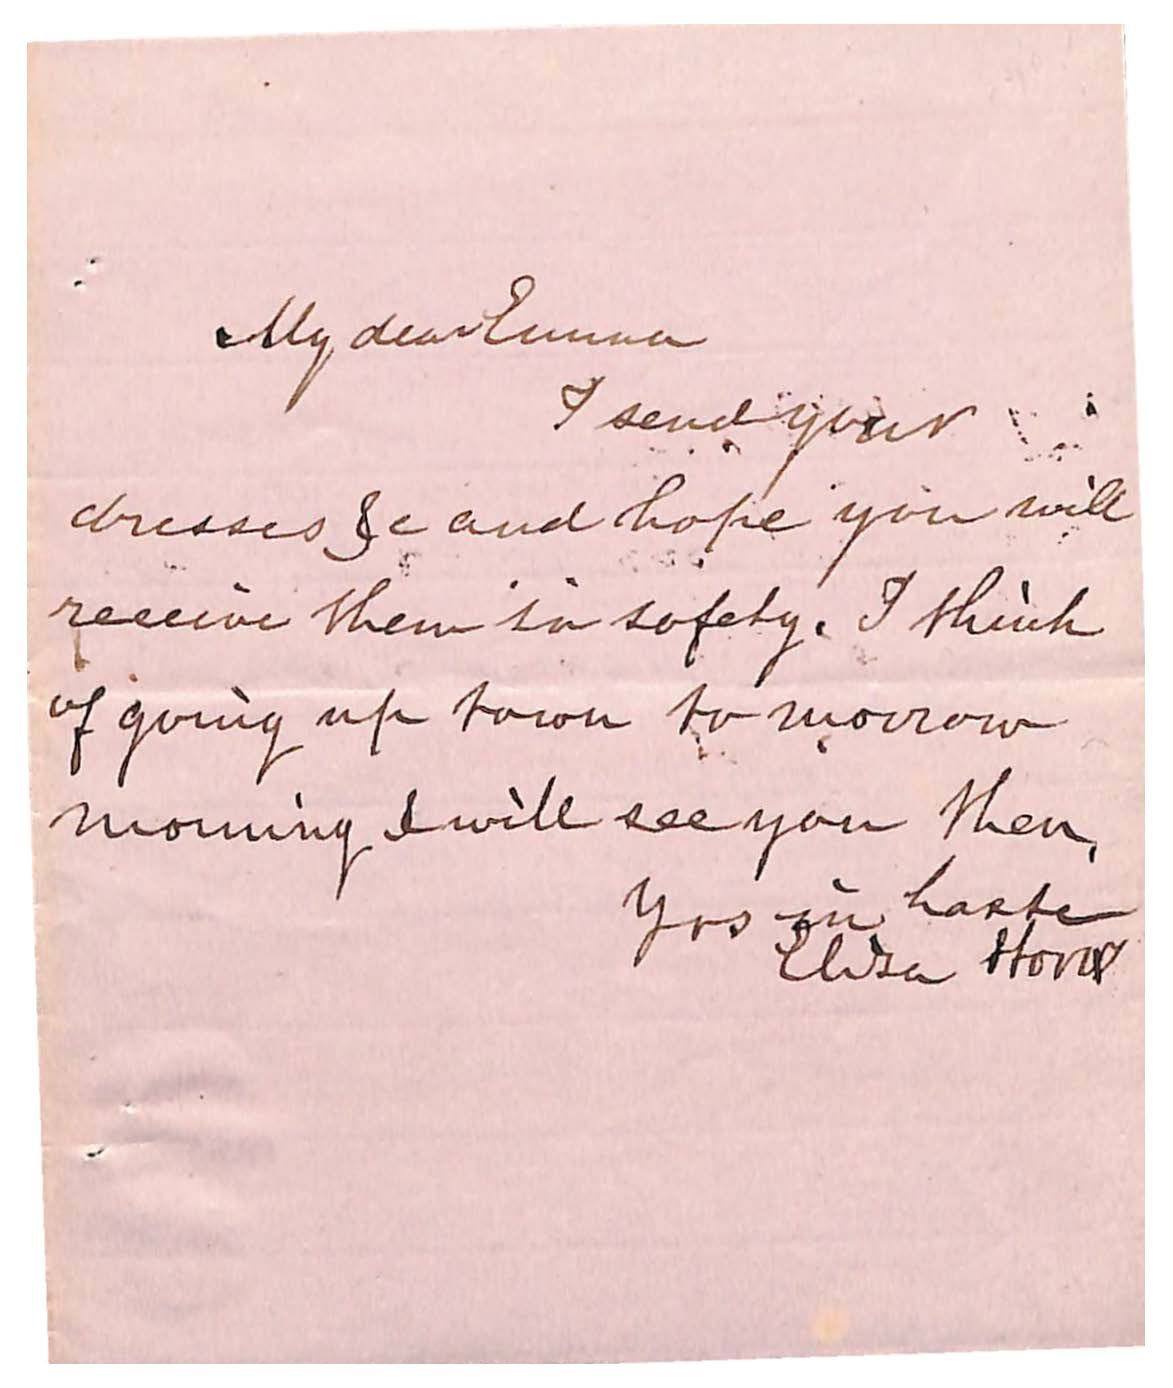 My dear Emma
I send your
dresses &c and hope you will
receive them in safety. I think
of going up town to morrow
morning I will see you then,
Yrs in haste
Eliza